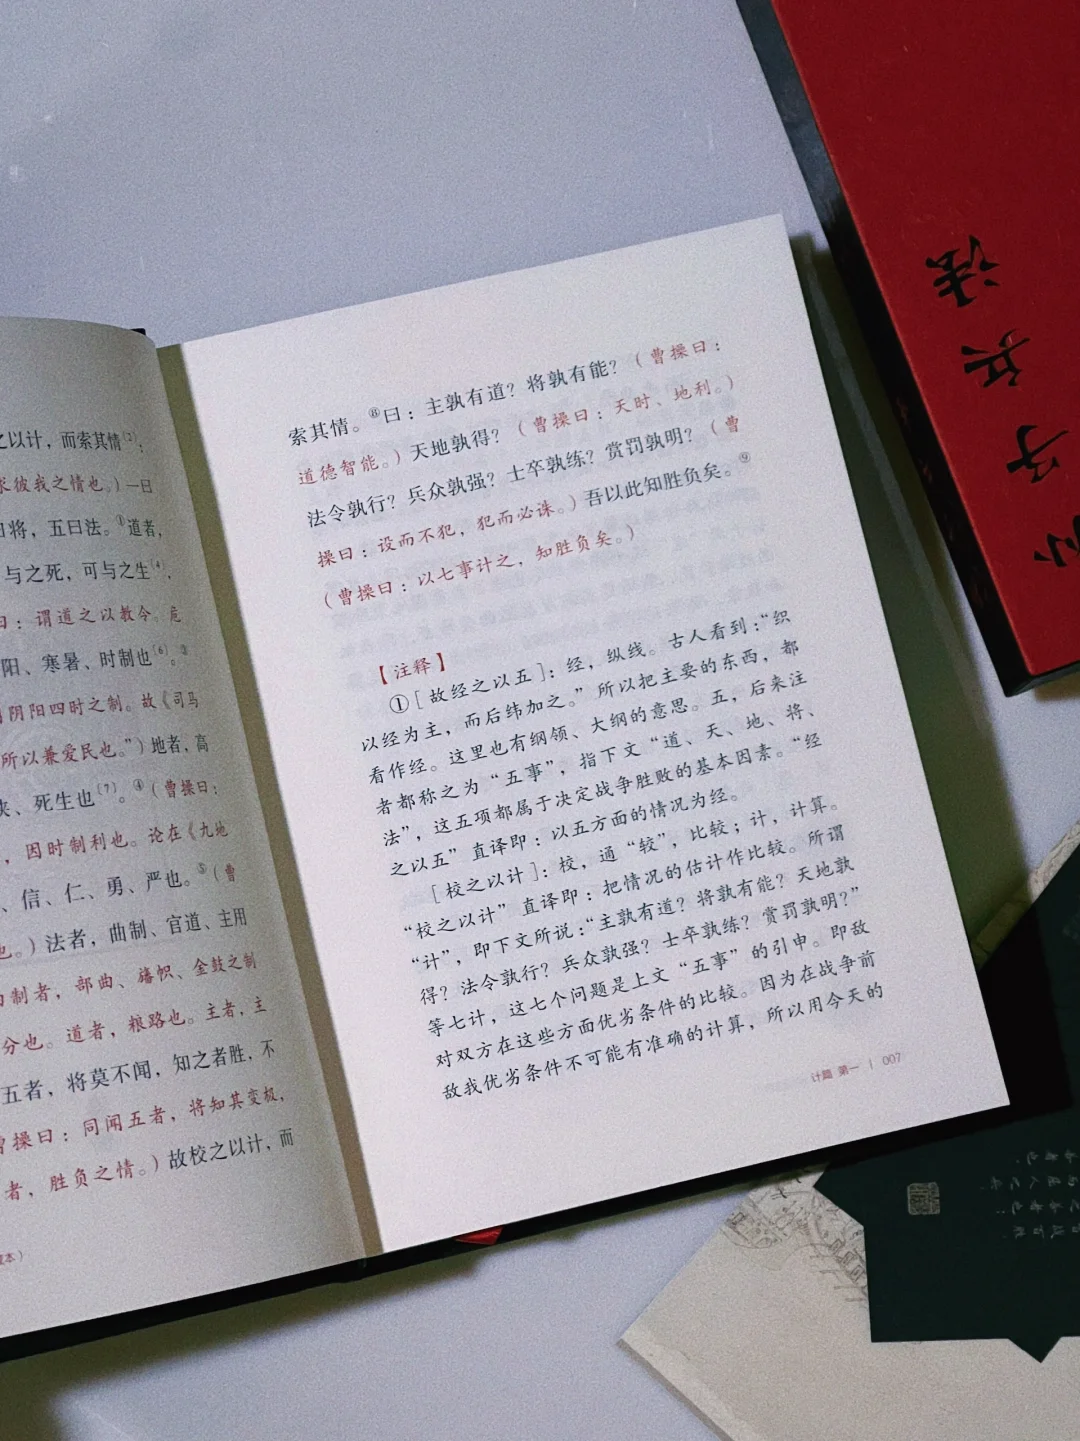 之以计，而索其情[2]：
求彼我之情也。）一曰
曰将，五曰法。①道者，
与之死，可与之生[4]，
曰：谓道之以教令。危
阳、寒暑、时制也[6]。③
阴阳四时之制。故《司马
所以兼爱民也。”）地者，高
、死生也[7]。④（曹操曰：
，因时制利也。论在《九地
、信、仁、勇、严也。⑤（曹
也。）法者，曲制、官道、主用
制者，部曲、旛帜、金鼓之制
分也。道者，粮路也。主者，主
五者，将莫不闻，知之者胜，不
曹操曰：同闻五者，将知其变极，
者，胜负之情。）故校之以计，而
本）
索其情。⑧曰：主孰有道？将孰有能？（曹操曰：
道德智能。）天地孰得？（曹操曰：天时、地利。）
法令孰行？兵众孰强？士卒孰练？赏罚孰明？（曹
操曰：设而不犯，犯而必诛。）吾以此知胜负矣。⑨
（曹操曰：以七事计之，知胜负矣。）
【注释】
①[故经之以五]：经，纵线。古人看到：“织
以经为主，而后纬加之。”所以把主要的东西，都
看作经。这里也有纲领、大纲的意思。五，后来注
者都称之为“五事”，指下文“道、天、地、将、
法”，这五项都属于决定战争胜败的基本因素。“经
之以五”直译即：以五方面的情况为经。
[校之以计]：校，通“较”，比较；计，计算。
“校之以计”直译即：把情况的估计作比较。所谓
“计”，即下文所说：“主孰有道？将孰有能？天地孰
得？法令孰行？兵众孰强？士卒孰练？赏罚孰明？”
等七计，这七个问题是上文“五事”的引申。即敌
对双方在这些方面优劣条件的比较。因为在战争前
敌我优劣条件不可能有准确的计算，所以用今天的
计篇 第一 | 007
孙子兵法